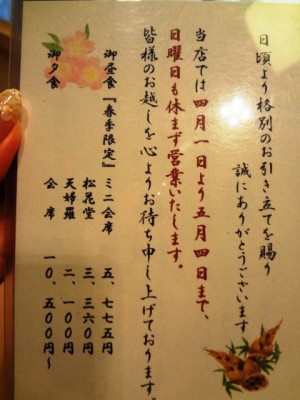 日頃より格別のお引き立てを賜り
誠にありがとうございます
当店では四月一日より五月四日まで、
日曜日も休まず営業いたします。
皆様のお越しを心よりお待ち申し上げております。
御昼食『春季限定』ミニ会席 五、七七五円
松花堂 三、三六〇円
天婦羅 二、一〇〇円
御夕食 会席 一〇、五〇〇円〜